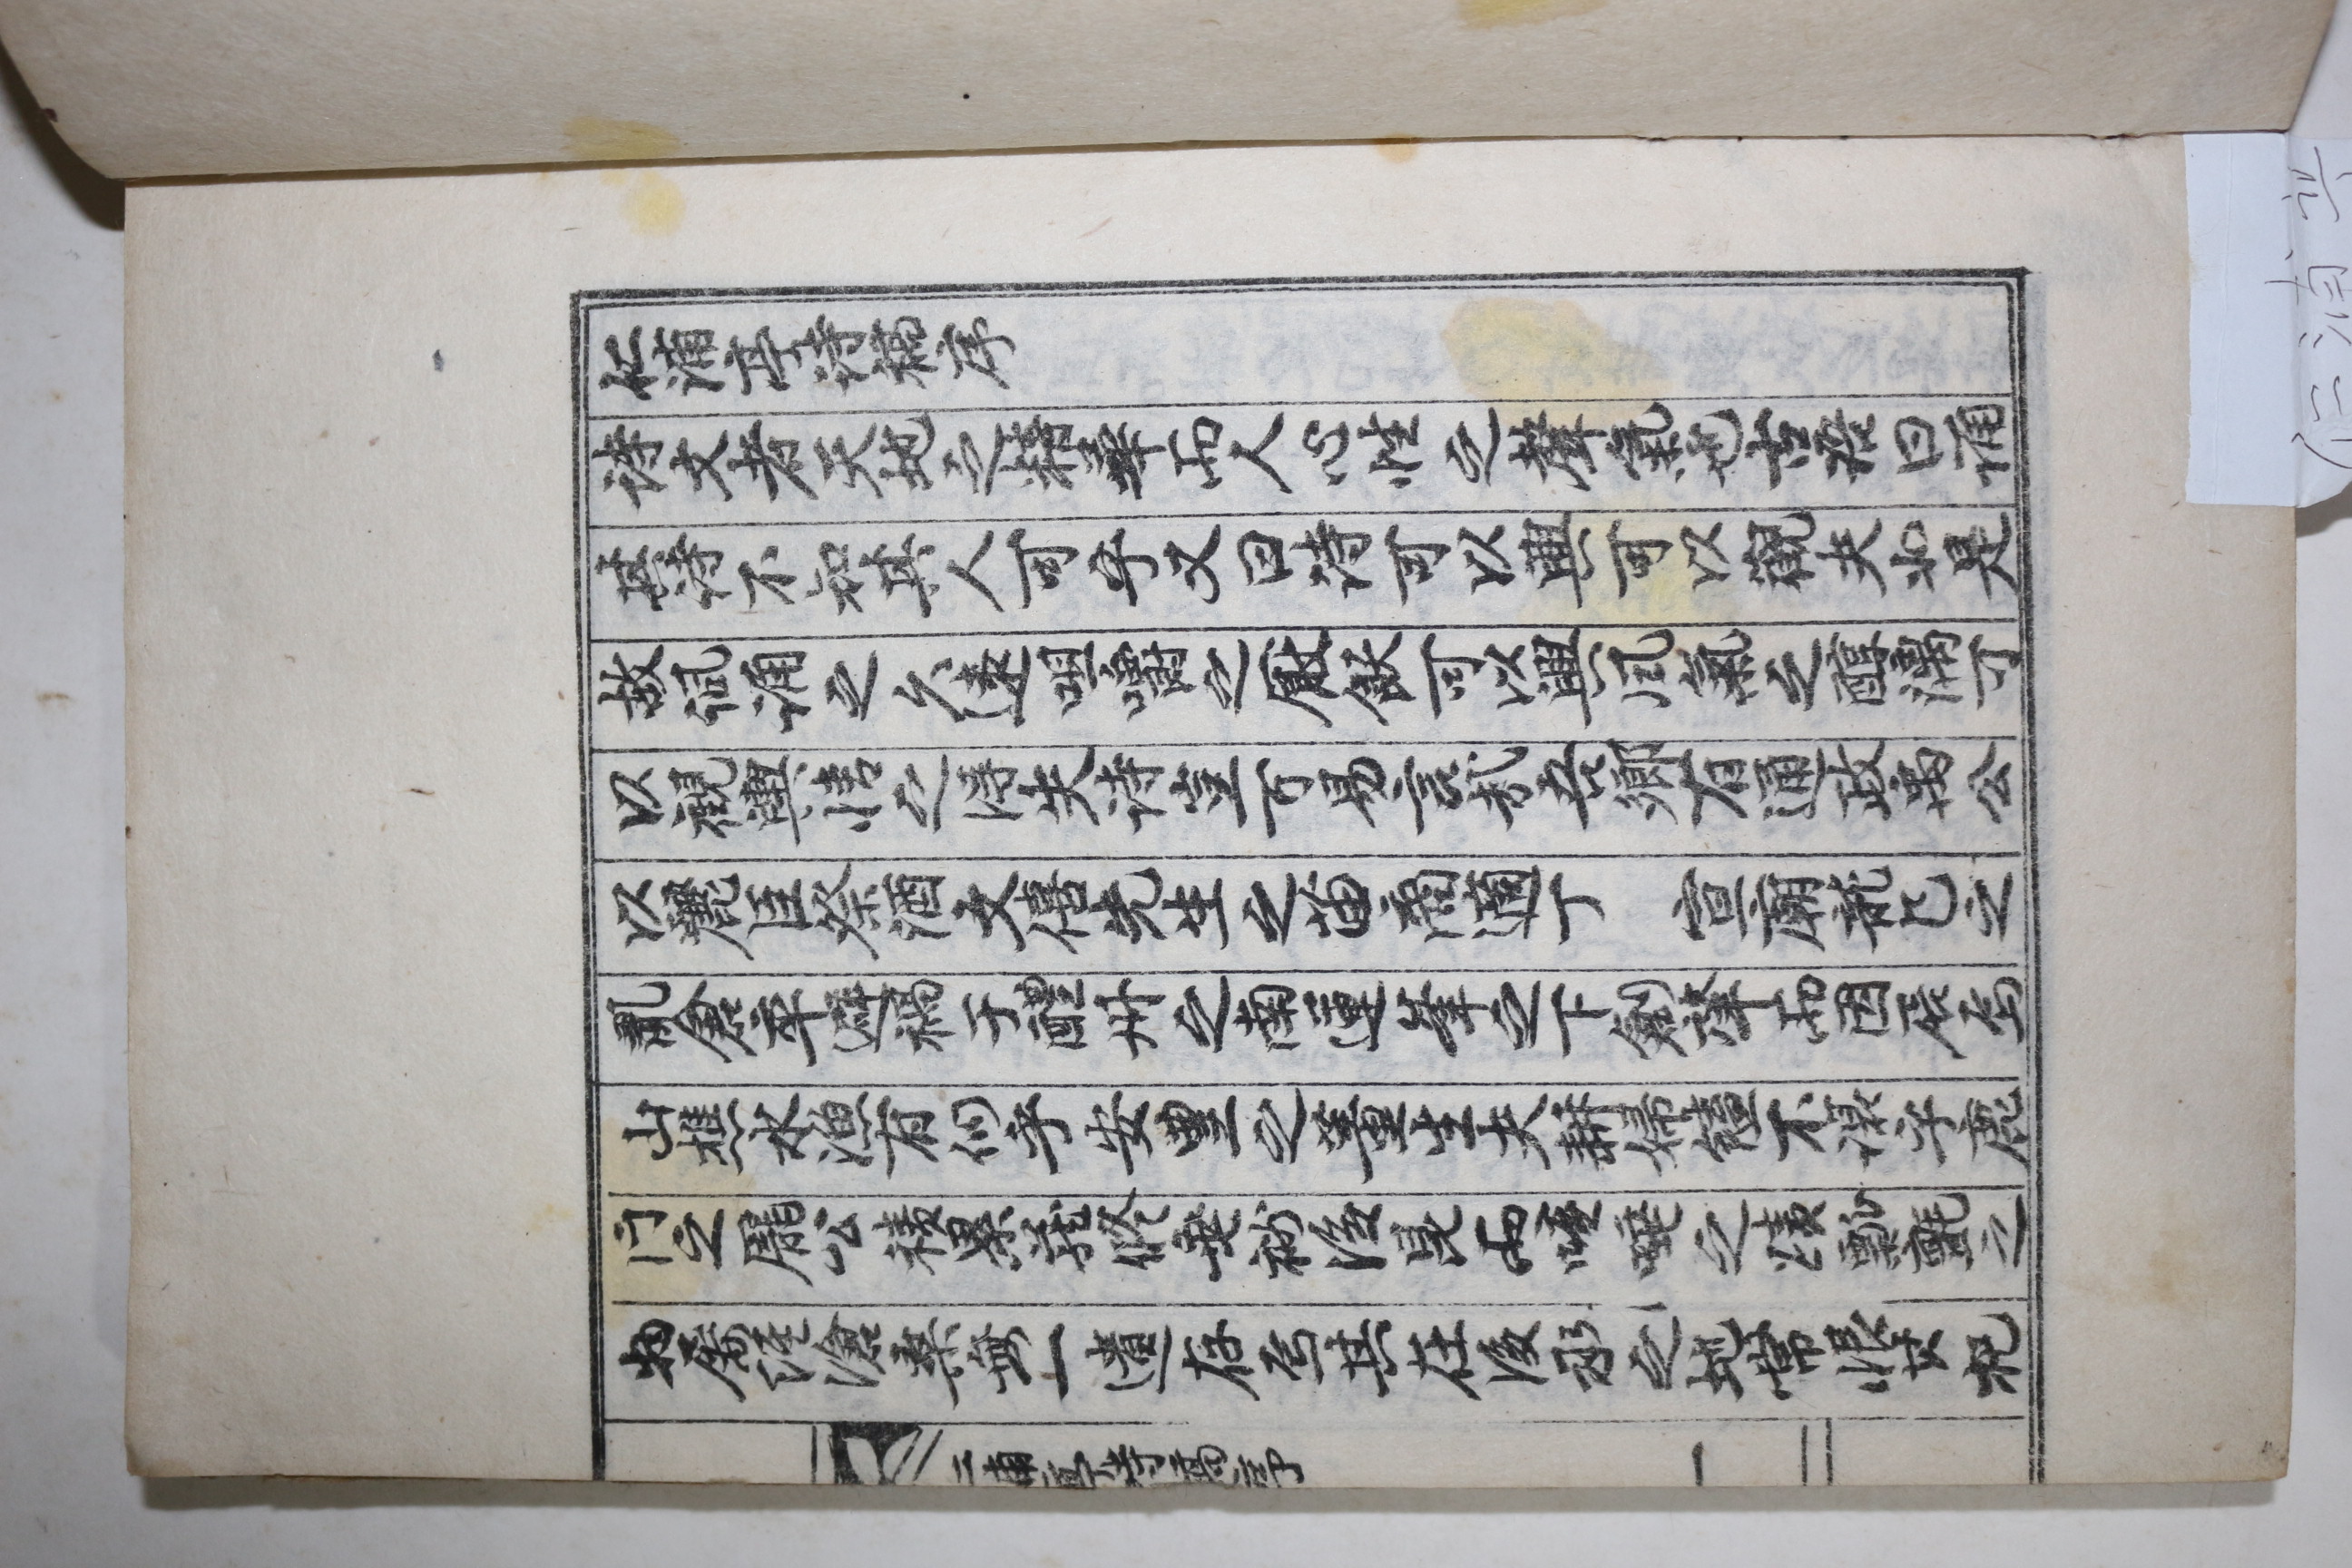 仁浦亭詩稿序
詩文者天地之精華而人心性之聲氣也古語曰誦
其詩不知其人可乎又曰詩可以興可以觀夫如是
故諷誦之久遠咀嚼之厭飫可以興風氣之醇漓可
以觀輿情之得失詩豈可易言哉吾鄉有通政禹公
以麗臣祭酒文僖先生之苗裔適丁　宣廟龍巳之
亂倉卒避禍于醴州之南運峯之下創肇而因居焉
山樵水漁有似乎安豐之董生夫耕婦饁不讓乎鹿
門之龐公積累蔭修垂裕後昆而咳唾之蹟瓢氈之
物屢經滄桑無一遺存焉其在後承之地常恨其杞
仁浦亭詩稿序
一
仁浦亭